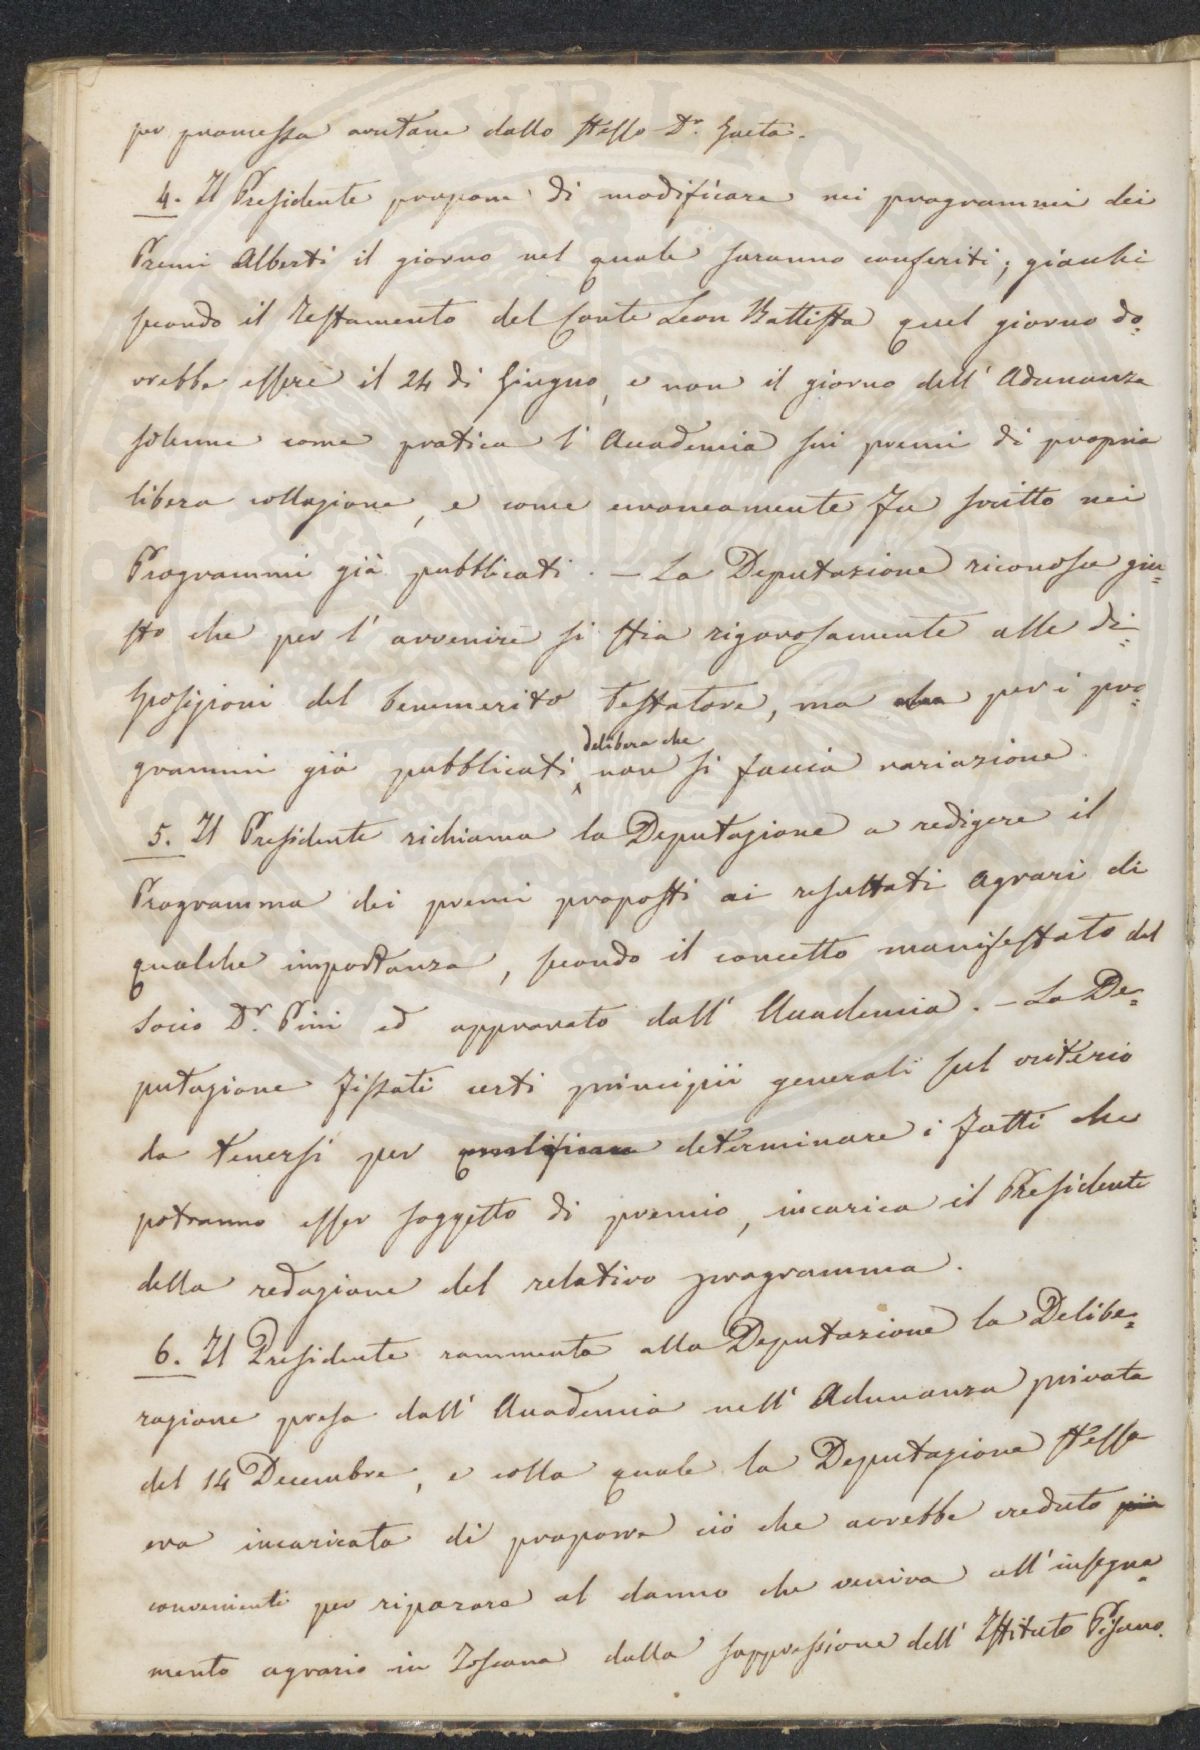 per promessa avutane dallo stesso Dr. Gaeta.
4. Il Presidente propone di modificare nei programmi dei
Premi Alberti il giorno nel quale saranno conferiti; giacchè
secondo il Testamento del Conte Leon Battista quel giorno do=
vrebbe essere il 24 di Giugno, e non il giorno dell' Adunanza
solenne come pratica l' Accademia sui premi di propria
libera collazione, e come erroneamente fu scritto nei
Programmi già pubblicati. – La Deputazione riconosce giu=
sto che per l' avvenire si stia rigorosamente alle di=
sposizioni del benemerito testatore, ma per i pro=
delibera che
grammi già pubblicati, non si faccia variazione.
5. Il Presidente richiama la Deputazione a redigere il
Programma dei premi proposti ai resultati Agrari di
qualche importanza, secondo il concetto manifestato dal
Socio Dr. Pini ed approvato dall' Accademia. – La De=
putazione fissati certi principii generali sul criterio
da tenersi per qualificare determinare i fatti che
potranno esser soggetto di premio, incarica il Presidente
della redazione del relativo programma.
6. Il Presidente rammenta alla Deputazione la Delibe=
razione presa dall' Accademia nell' Adunanza privata
del 14 Decembre, e colla quale la Deputazione stessa
era incaricata di proporre ciò che avrebbe creduto più
convenienti per riparare al danno che veniva all' insegna=
mento agrario in Toscana dalla soppressione dell' Istituto Pisano.
PVBLIC